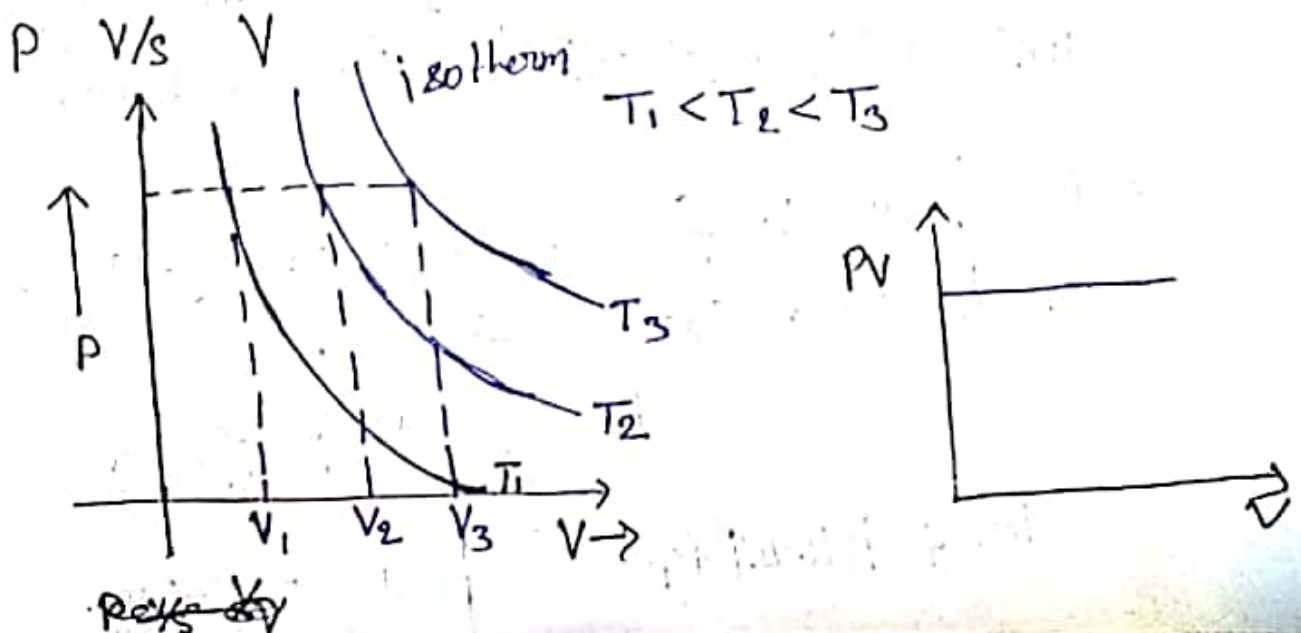 P V/s V
isotherm
T1 < T2 < T3
P
T3
T2
T1
V1 V2 V3 V→
PV
V